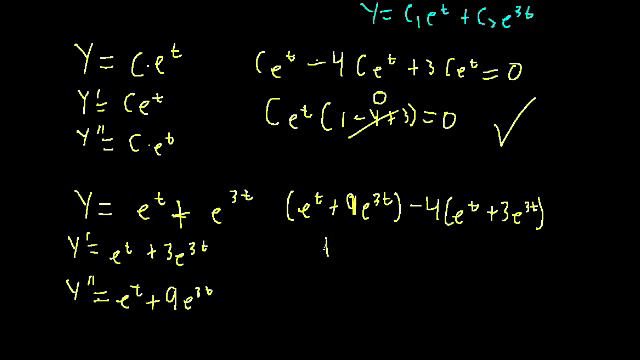 y = c₁eᵗ + c₂e³ᵗ
y = c·eᵗ
y' = ceᵗ
y'' = c·eᵗ
ceᵗ - 4ceᵗ + 3ceᵗ = 0
ceᵗ(1 - 4 + 3) = 0 ✓
0
y = eᵗ + e³ᵗ
y' = eᵗ + 3e³ᵗ
y'' = eᵗ + 9e³ᵗ
(eᵗ + 9e³ᵗ) - 4(eᵗ + 3e³ᵗ)